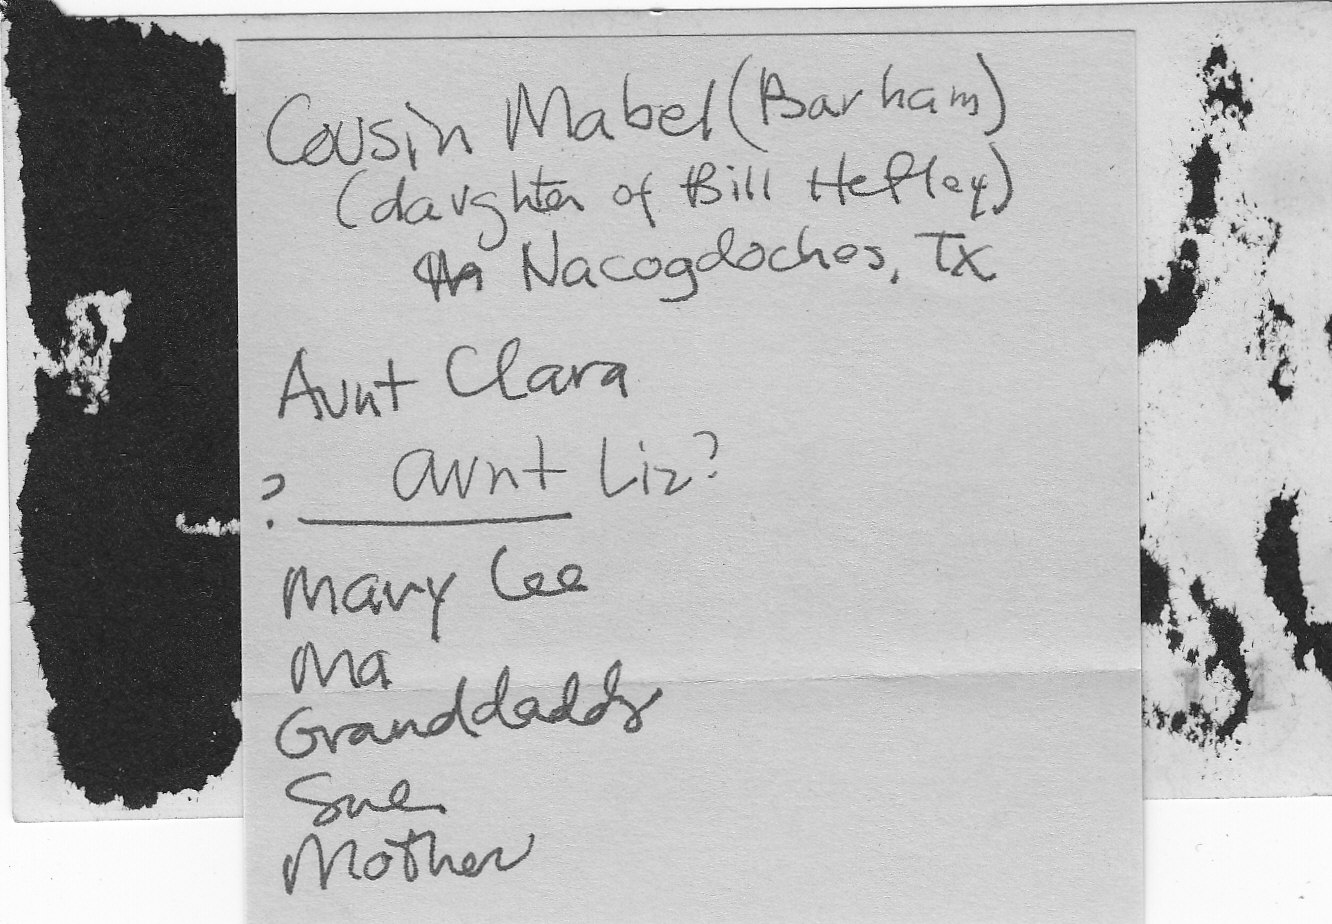 Cousin Mabel (Barham)
(daughter of Bill Hefley)
Nacogdoches, TX
Aunt Clara
? aunt Liz?
Mary Lee
Ma
Granddaddy
Sue
Mother